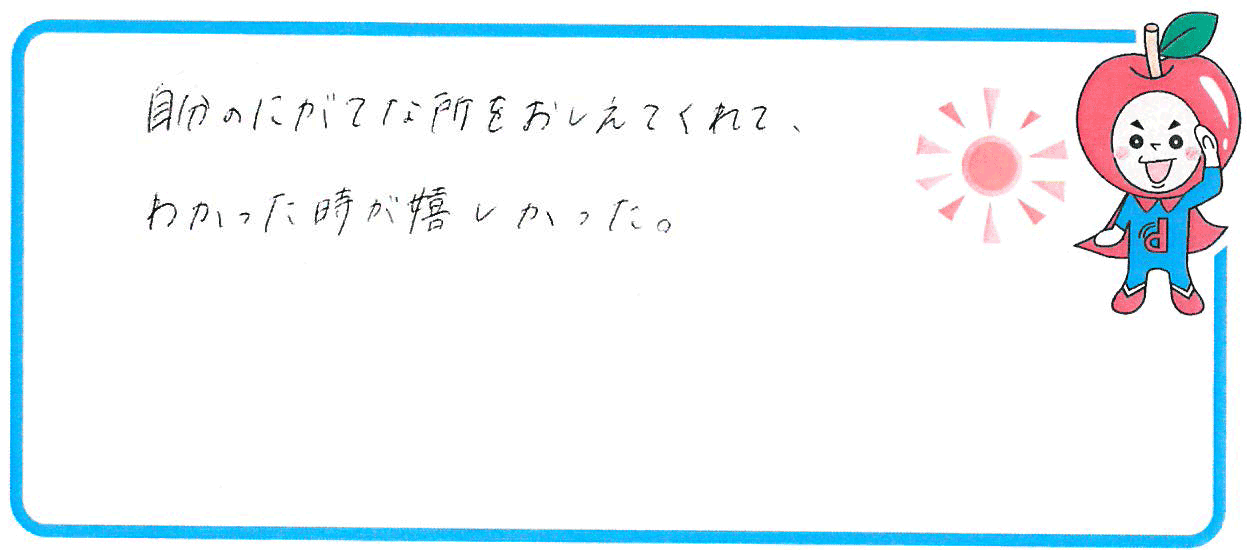 自分のにがてな所をおしえてくれて、
わかった時が嬉しかった。